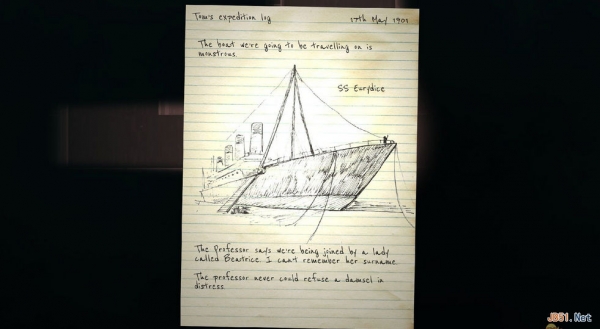 Tom's expedition log
17th May 1901
The boat we're going to be travelling on is
monstrous.
SS Eurydice
The Professor says we're being joined by a lady
called Beatrice. I can't remember her surname.
The professor never could refuse a damsel in
distress.
J881.Net